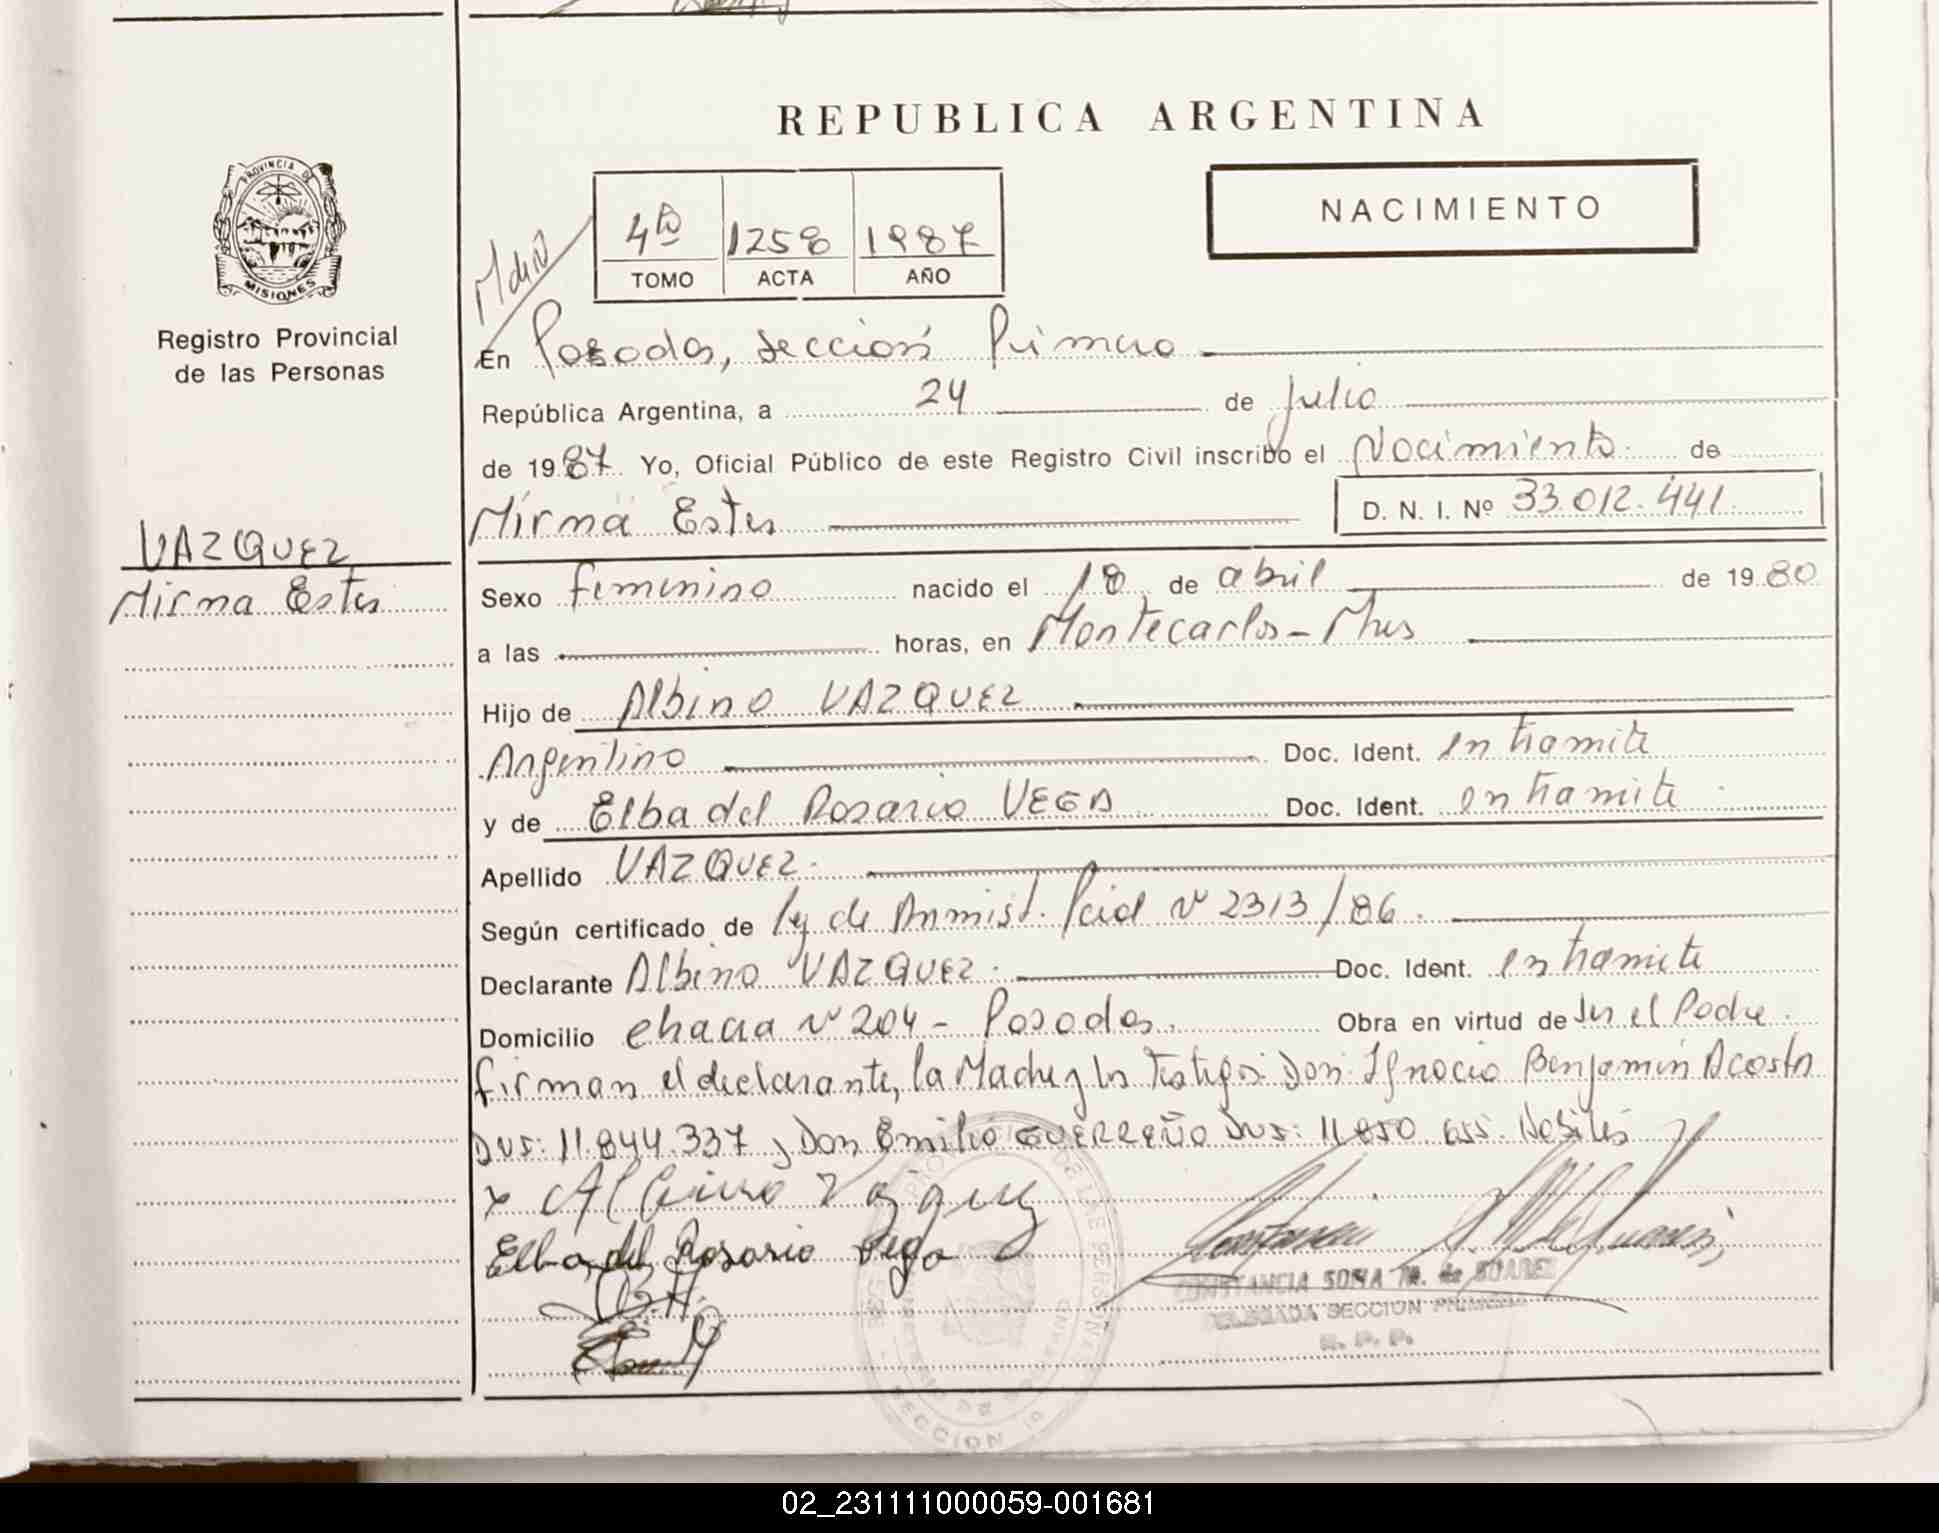 REPUBLICA ARGENTINA
PROVINCIA DE
MISIONES
Registro Provincial
de las Personas
NACIMIENTO
4to 1258 1987
TOMO ACTA AÑO
En Posadas, Sección Primera
República Argentina, a 24 de Julio
de 1987 Yo, Oficial Público de este Registro Civil inscribo el Nacimiento de
Mirna Ester D. N. I. Nº 33.012.441
VAZQUEZ
Mirna Ester
Sexo femenino nacido el 18 de abril de 1980
a las horas, en Montecarlos - Mnes
Hijo de Albino VAZQUEZ
Argentino Doc. Ident. en tramite
y de Elba del Rosario VEGA Doc. Ident. en tramite
Apellido VAZQUEZ.
Según certificado de ley de Amnist. Pcial Nº 2313/86.
Declarante Albino VAZQUEZ. Doc. Ident. en tramite
Domicilio chacra Nº 204 - Posadas. Obra en virtud de Ser el Padre.
firman el declarante, la Madre y los Testigos Don Ignacio Benjamin Acosta
DNI: 11.844.337 y Don Emilio GUERREÑO DNI: 11.850
x Albino Vazquez
Elba del Rosario Vega
CONSTANCIA SOFIA M. de SUAREZ
DELEGADA SECCION PRIMERA
R. P. P.
02_231111000059-001681